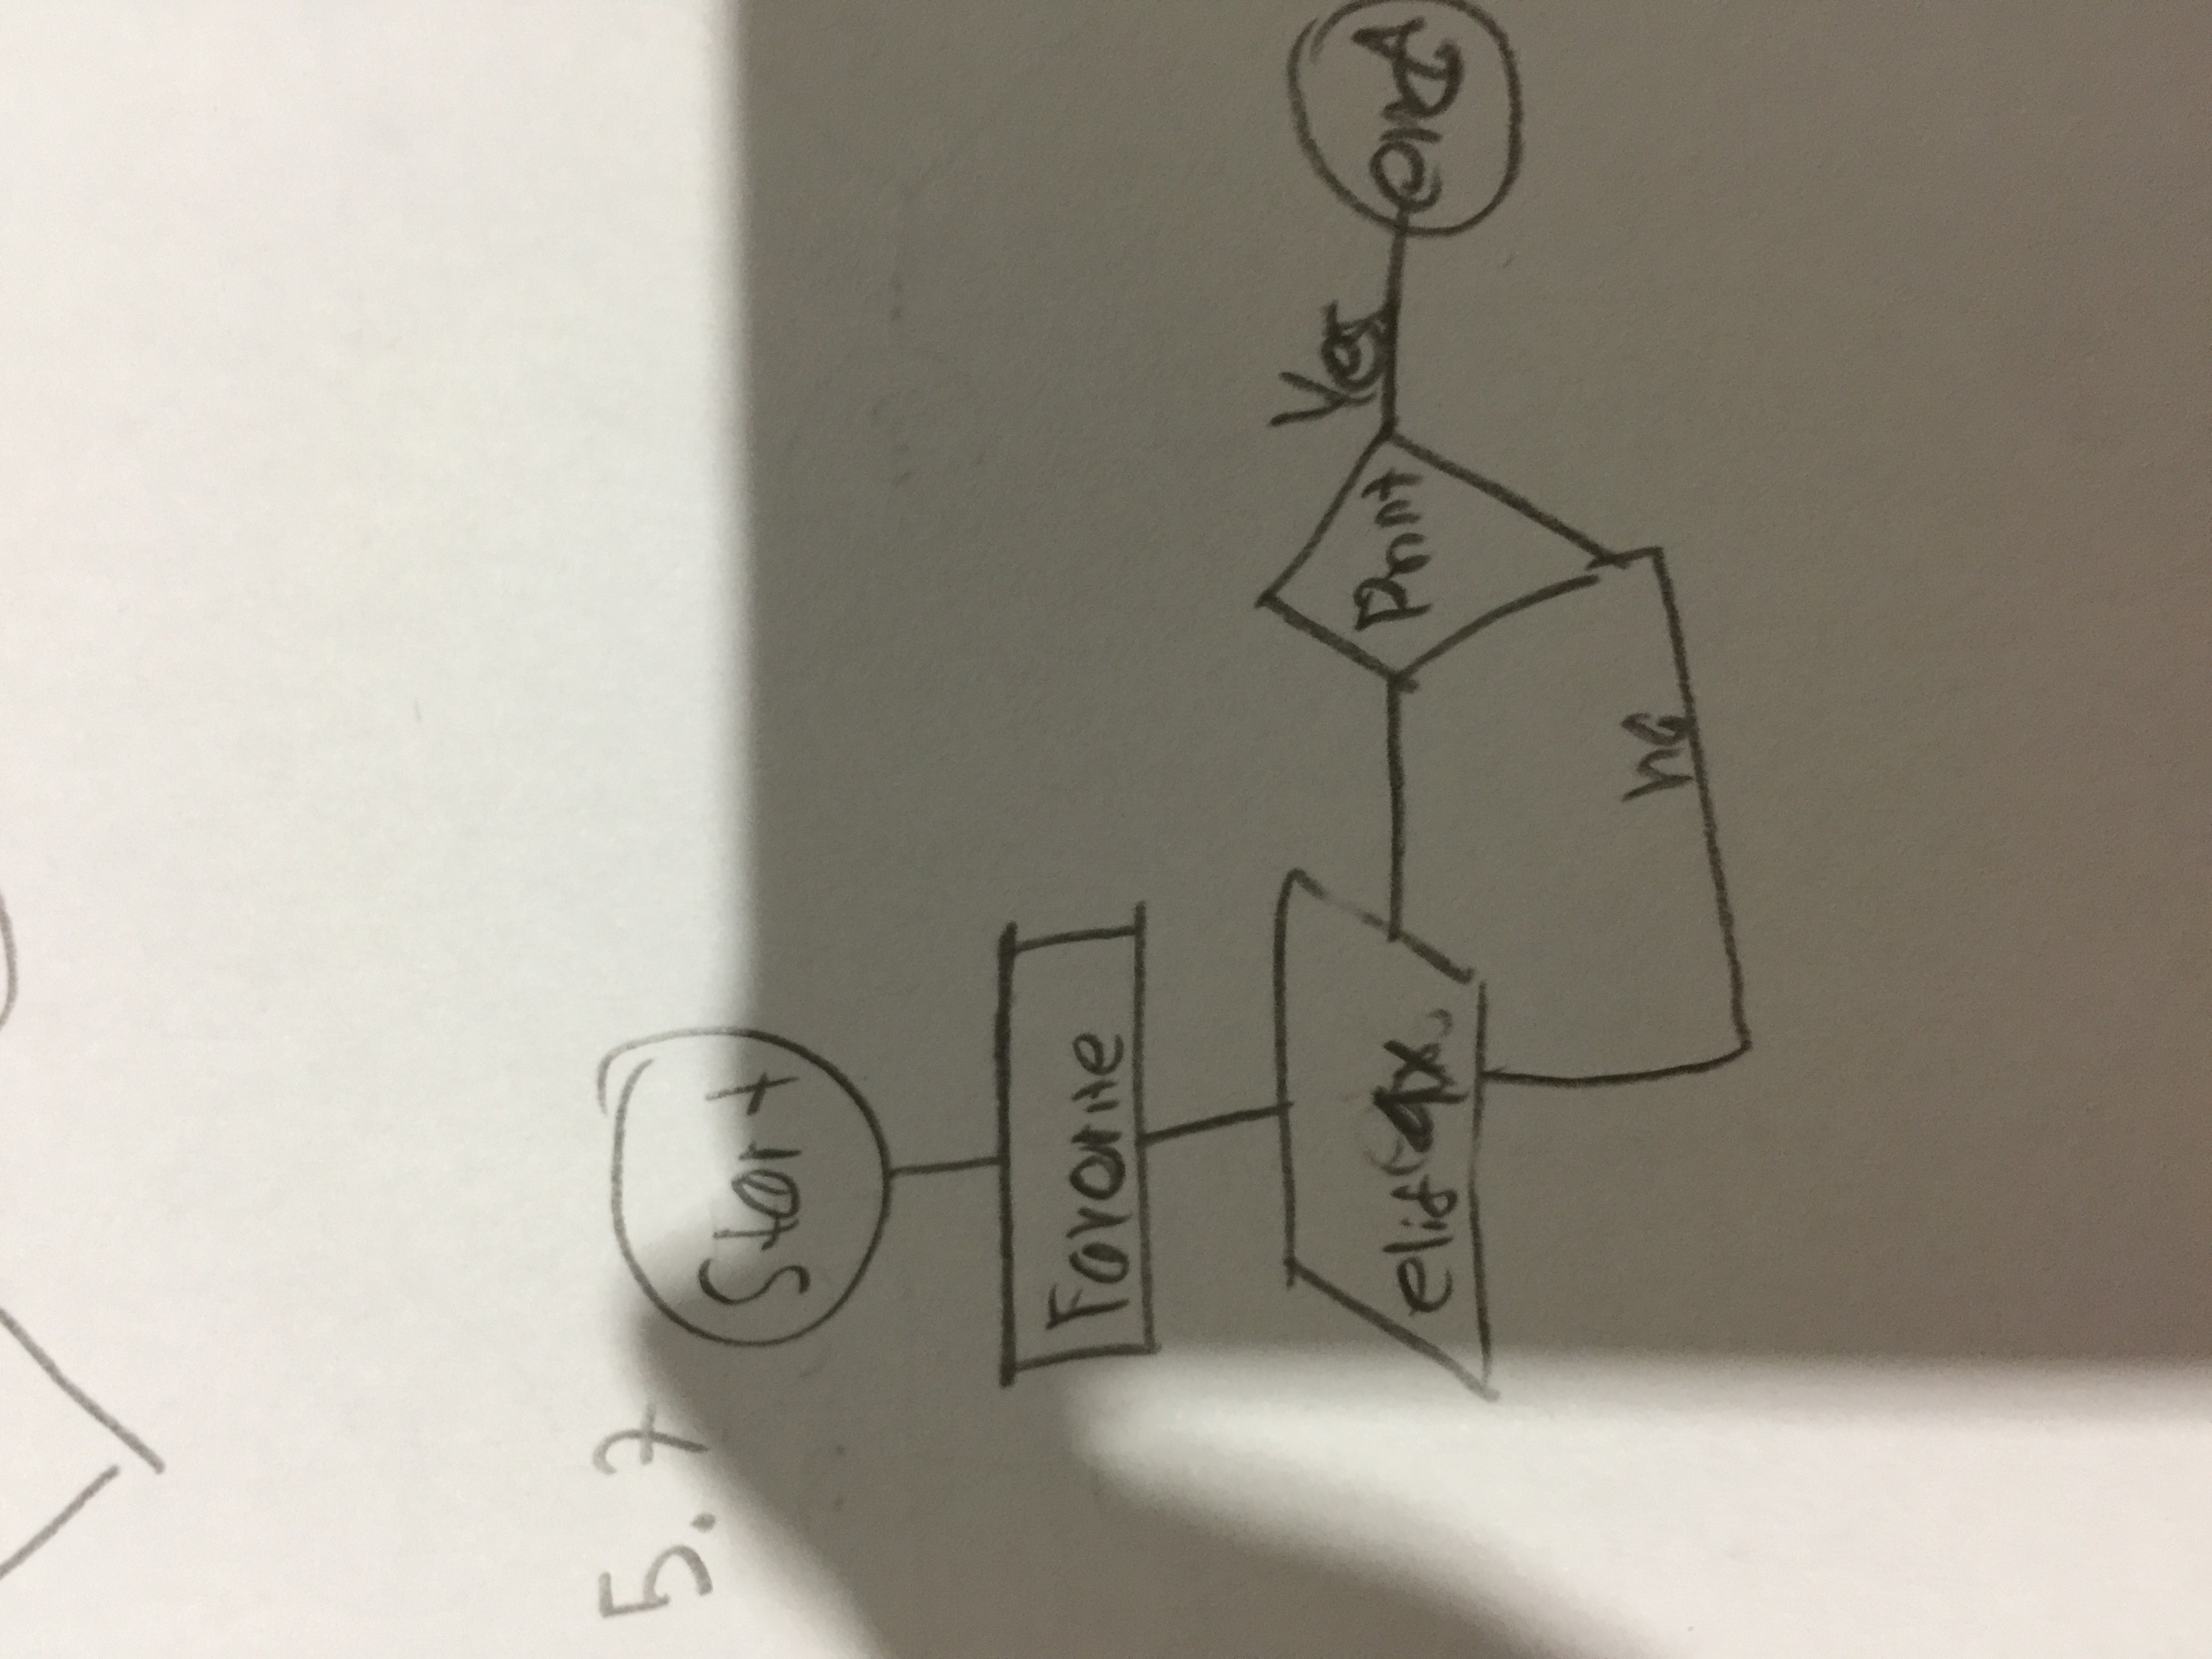 5.7
Start
Favorite
elif 4x
Print
Yes
end
no